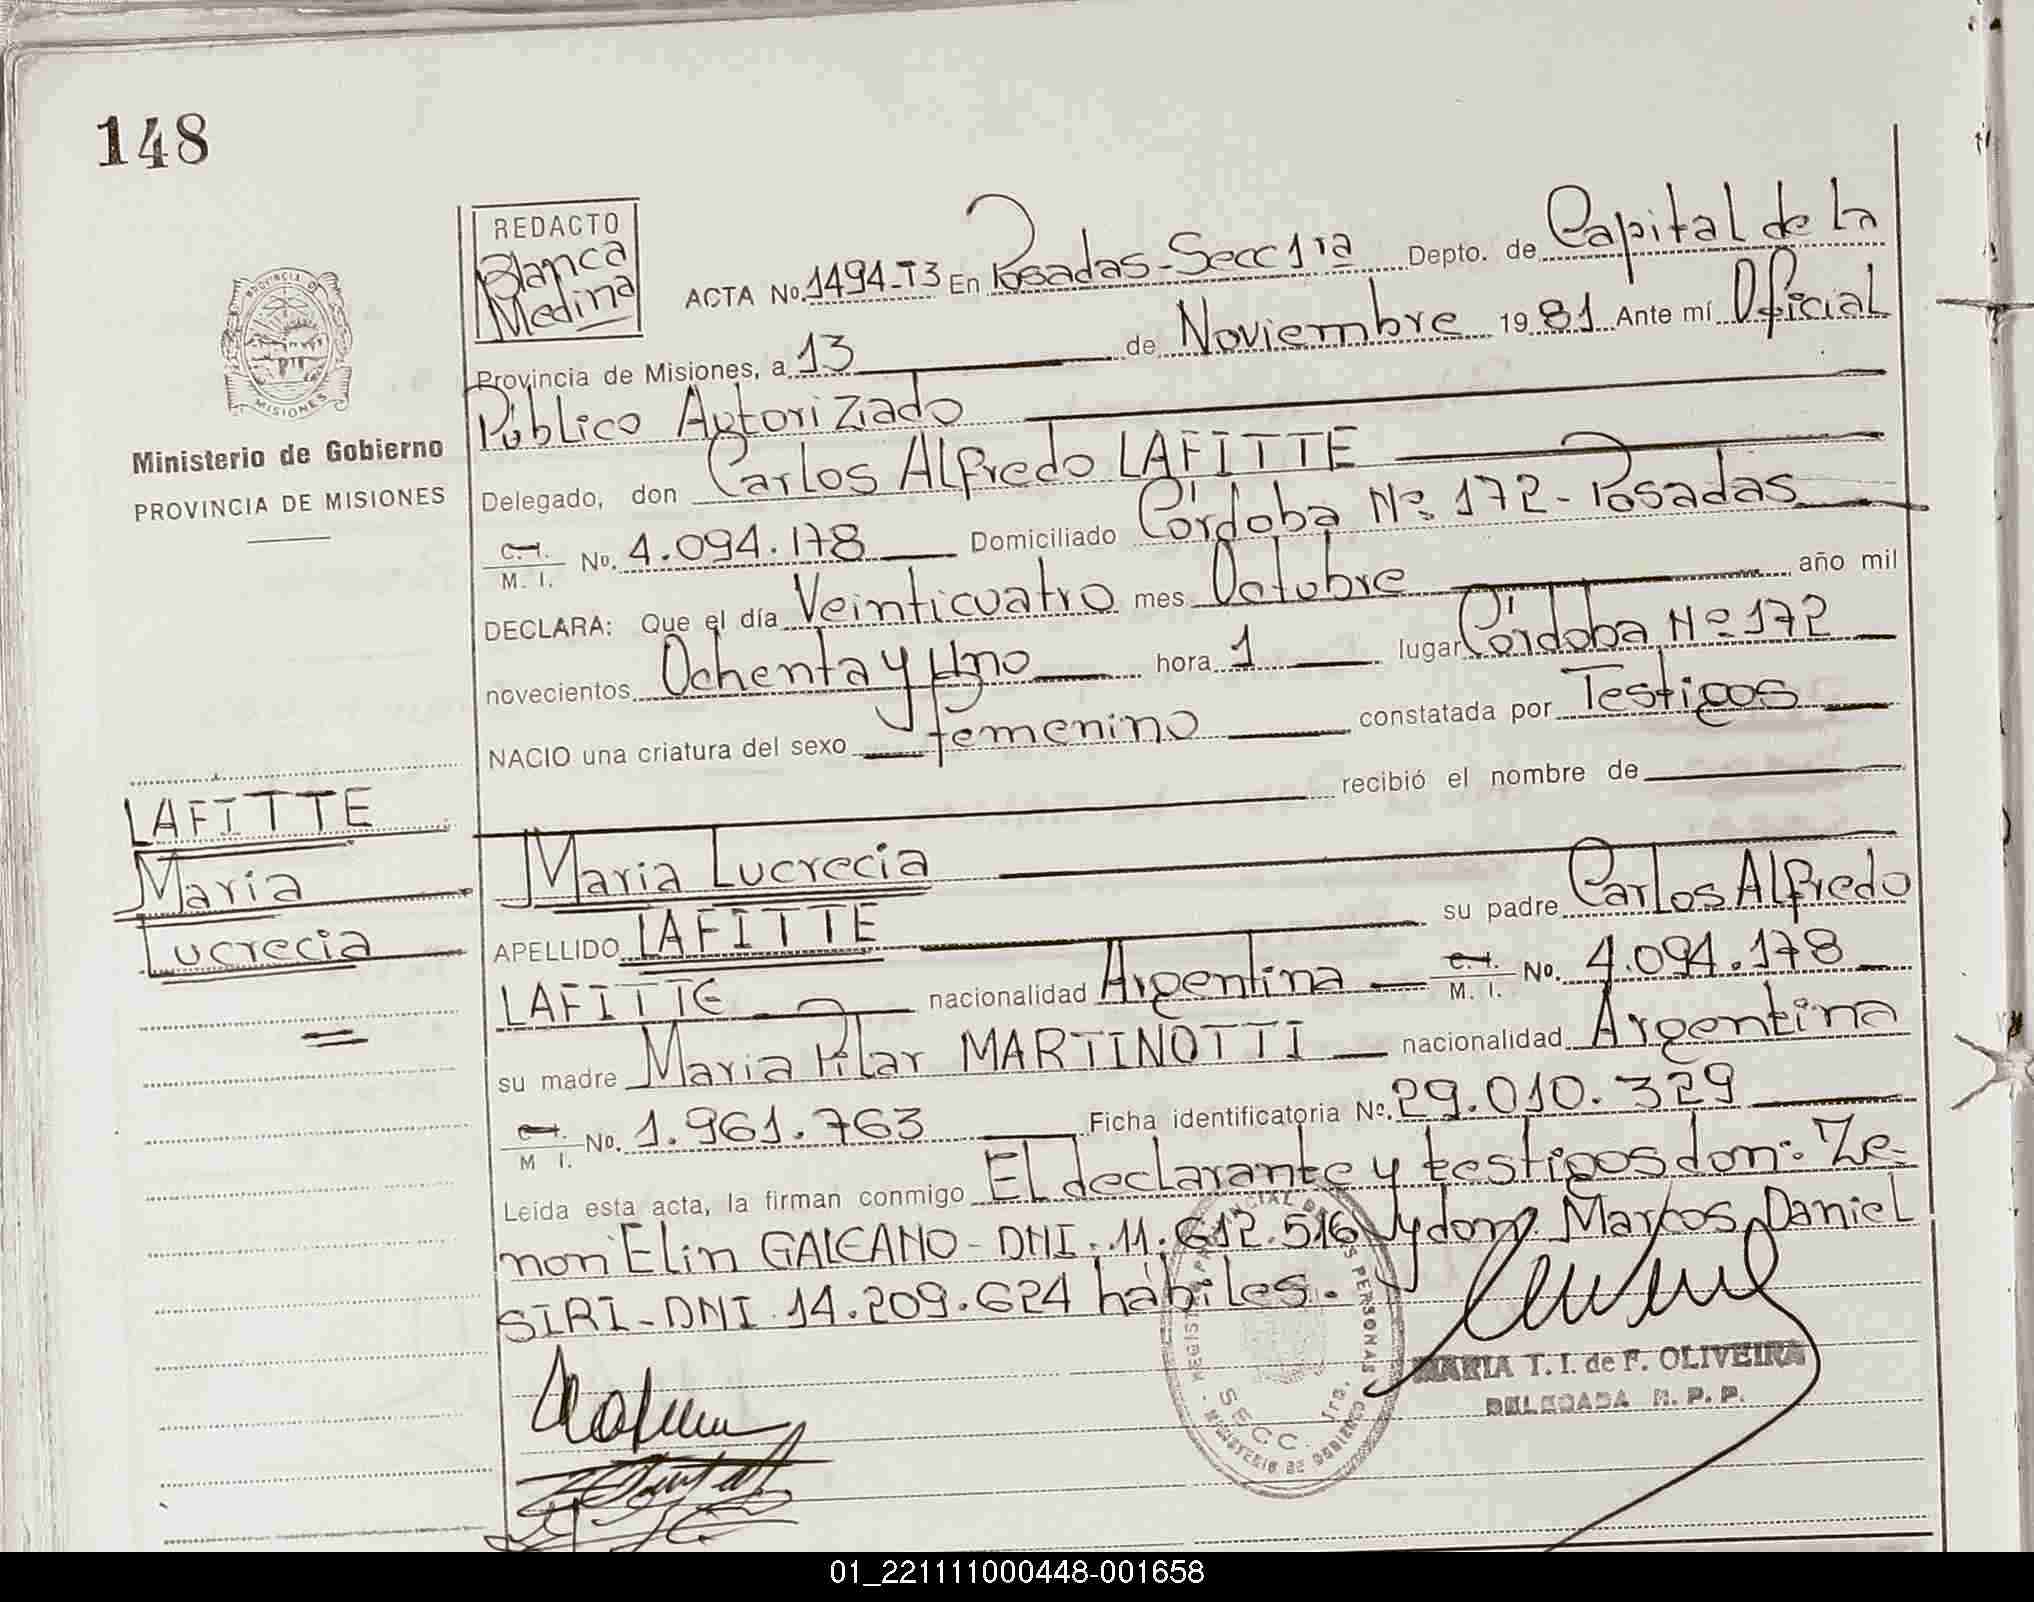 148
REDACTO
Blanca
Medina
PROVINCIA DE
MISIONES
Ministerio de Gobierno
PROVINCIA DE MISIONES
ACTA No. 1494-T3 En Posadas-Secc 1ra Depto. de Capital de la
Provincia de Misiones, a 13 de Noviembre 1981 Ante mí Oficial
Público Autorizado
Delegado, don Carlos Alfredo LAFITTE
C.I. M. I. No. 4.094.178 Domiciliado Córdoba Nº 172 - Posadas
DECLARA: Que el día Veinticuatro mes Octubre año mil
novecientos Ochenta y Uno hora 1 lugar Córdoba Nº 172
NACIO una criatura del sexo femenino constatada por Testigos
recibió el nombre de
LAFITTE
Maria
Lucrecia
Maria Lucrecia
APELLIDO LAFITTE su padre Carlos Alfredo
LAFITTE nacionalidad Argentina C.I. M. I. No. 4.094.178
su madre Maria Pilar MARTINOTTI nacionalidad Argentina
C.I. M I. No. 1.961.763 Ficha identificatoria No. 29.010.329
Leída esta acta, la firman conmigo El declarante y testigos don: Ze-
non Elin GALEANO - DNI. 11.612.516 y don Marcos Daniel
SIRI - DNI 14.209.624 hábiles.
MARIA T. I. de F. OLIVEIRA
DELEGADA R. P. P.
PERSONAS
SECC. 1ra.
MINISTERIO DE GOBIERNO
01_221111000448-001658